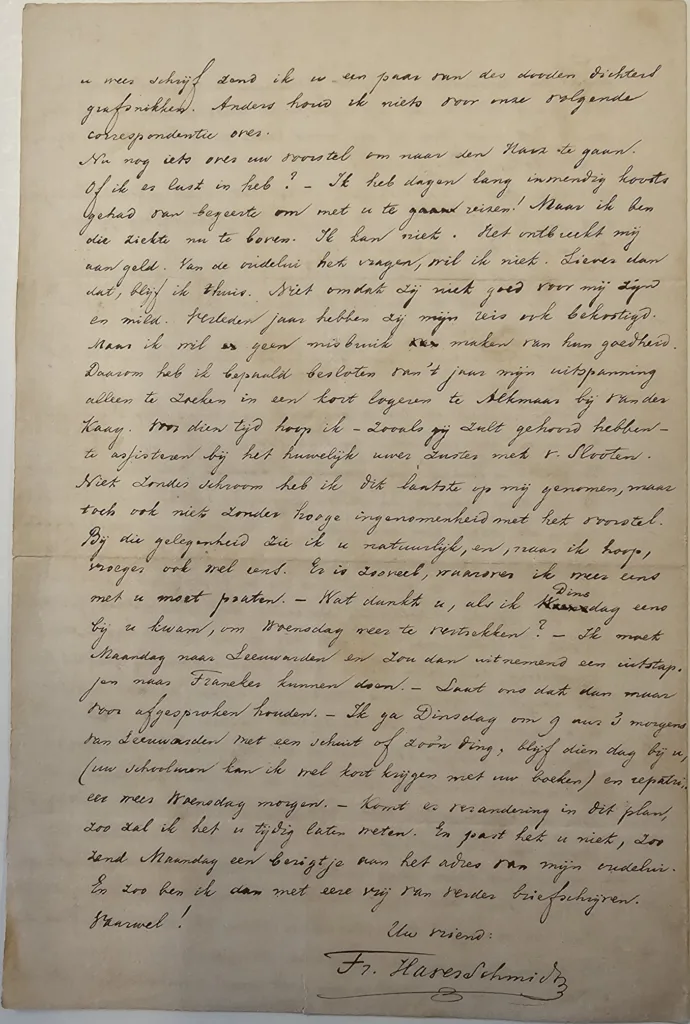 u weer schrijf zend ik u een paar van des dooden dichters
grafsnikken. Anders houd ik niets voor onze volgende
correspondentie over.
Nu nog iets over uw voorstel om naar den Harz te gaan.
Of ik er lust in heb? – Ik heb dagen lang inwendig koorts
gehad van begeerte om met u te gaan reizen! Maar ik ben
die ziekte nu te boven. Ik kan niet. Het ontbreekt mij
aan geld. Van de oudelui het vragen, wil ik niet. Liever dan
dat, blijf ik thuis. Niet omdat zij niet goed voor mij zijn
en mild. Verleden jaar hebben zij mijn reis ook bekostigd.
Maar ik wil geen misbruik maken van hun goedheid.
Daarom heb ik bepaald besloten van 't jaar mijn uitspanning
alleen te zoeken in een kort logeren te Alkmaar bij van der
Kaag. Voor dien tijd hoop ik – zooals gij zult gehoord hebben –
te assisteren bij het huwelijk uwer zuster met v. Slooten.
Niet zonder schroom heb ik dit laatste op mij genomen, maar
toch ook niet zonder hooge ingenomenheid met het voorstel.
Bij die gelegenheid zie ik u natuurlijk, en, naar ik hoop,
vroeger ook wel eens. Er is zooveel, waarover ik weer eens
met u moet praten. – Wat dunkt u, als ik Dinsdag eens
bij u kwam, om Woensdag weer te vertrekken? – Ik moet
Maandag naar Leeuwarden en zou dan uitnemend een uitstap-
jen naar Franeker kunnen doen. – Laat ons dat dan maar
voor afgesproken houden. – Ik ga Dinsdag om 9 uur 3 morgens
van Leeuwarden met een schuit of zoo'n ding, blijf dien dag bij u,
(uw schooluren kan ik wel kort krijgen met uw boeken) en repatri-
eer weer Woensdag morgen. – Komt er verandering in dit plan,
zoo zal ik het u tijdig laten weten. En past het u niet, zoo
zend Maandag een berigtje aan het adres van mijn oudelui.
En zoo ben ik dan met eere vrij van verder briefschrijven.
Vaarwel!
Uw vriend:
Fr. HaverSchmidt